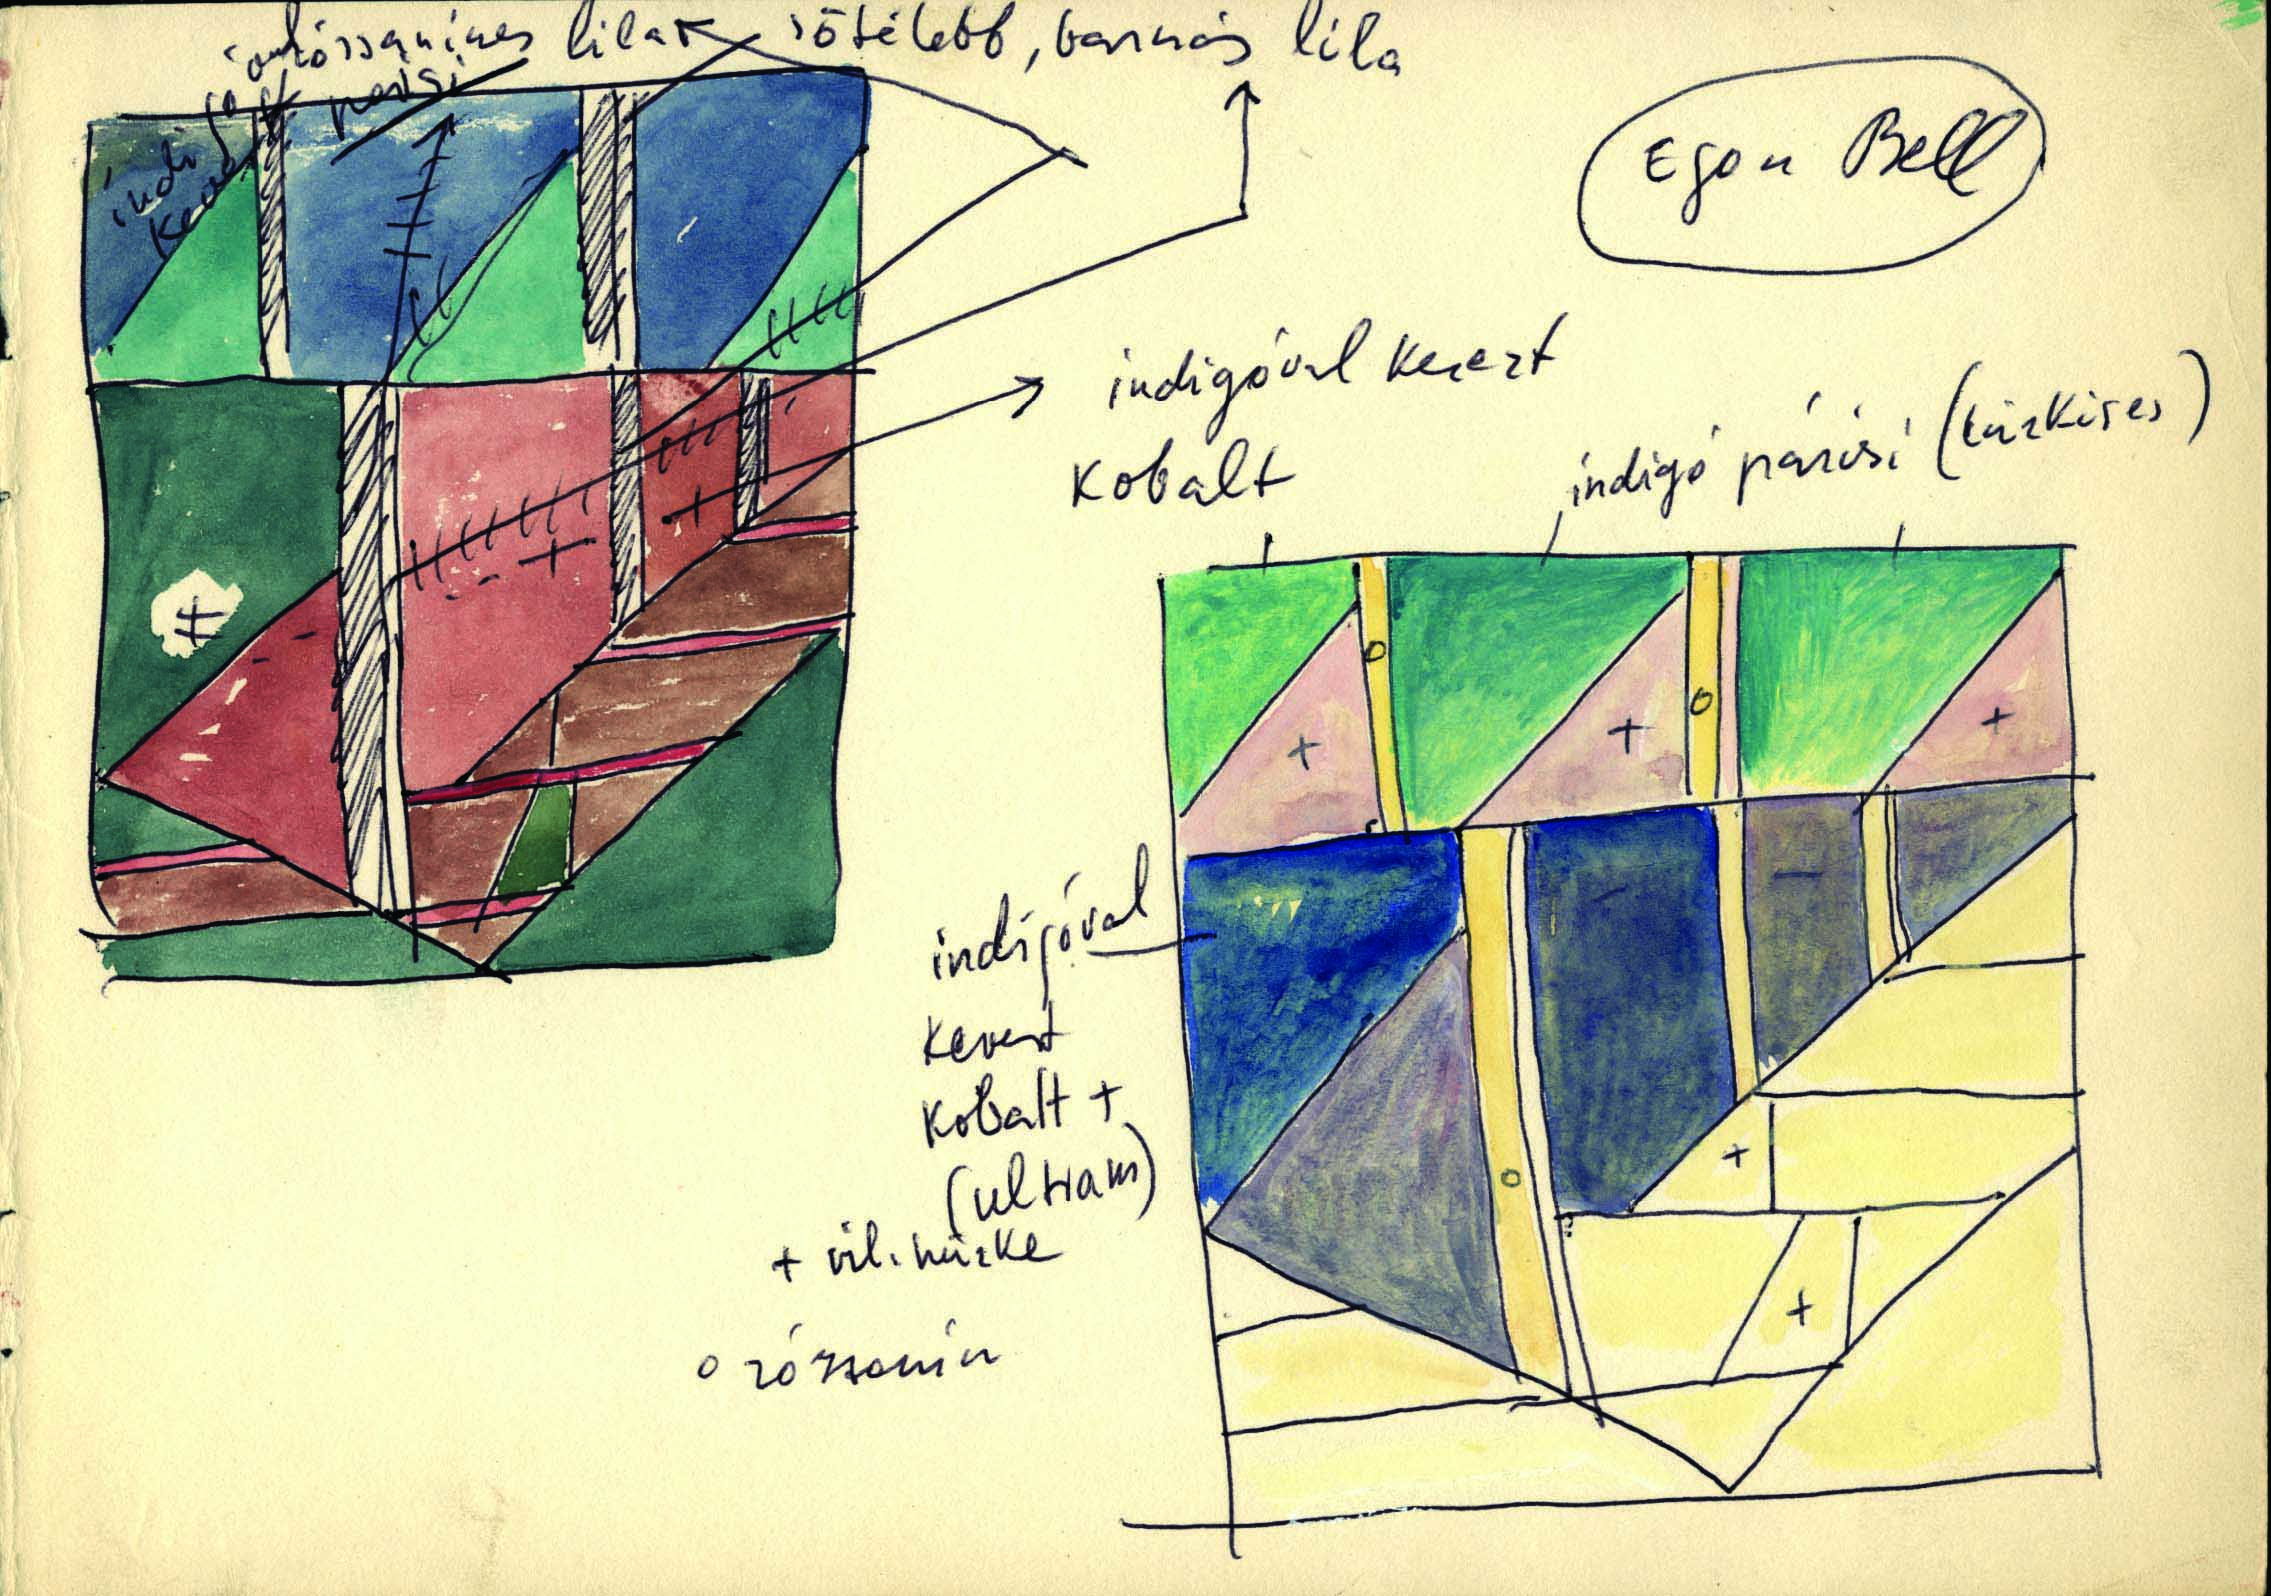 lila sötétebb, barnás lila
párisi
indigó
Egon Bell
indigóval kevert
kobalt
indigó párisi (türkises)
indigóval
kevert
kobalt +
(ultram)
+ vil. türke
o rózsaszín